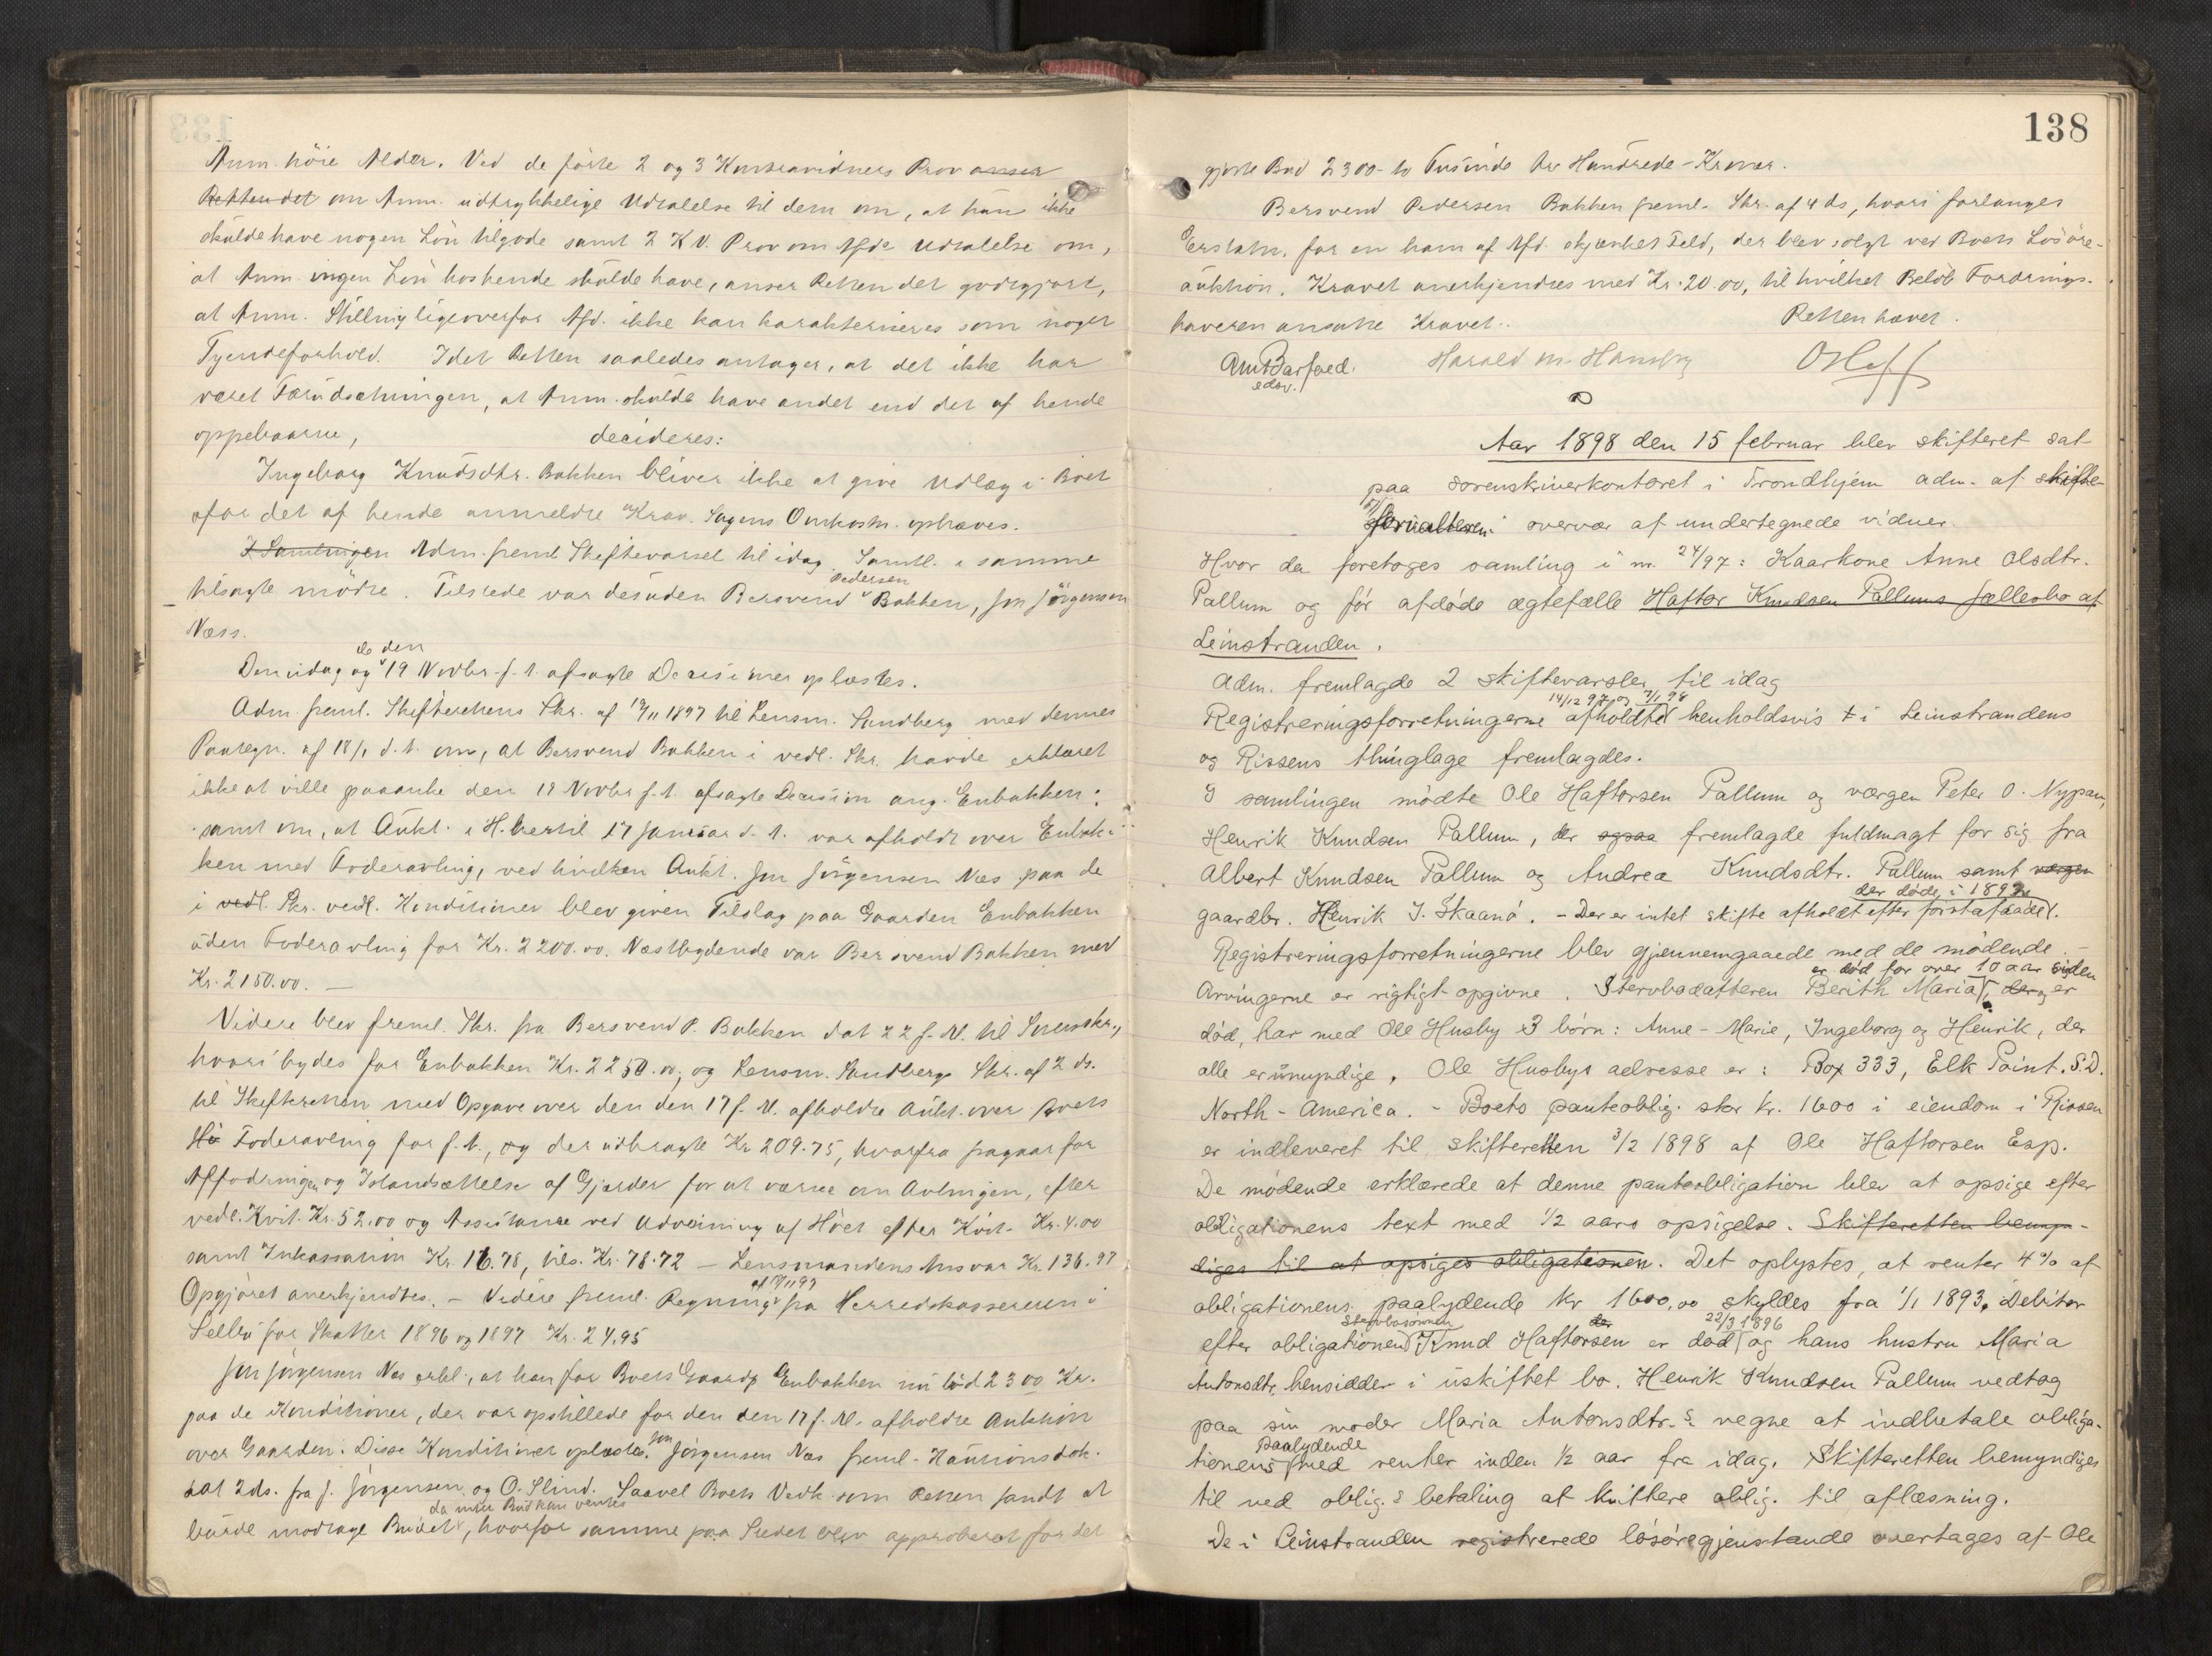 Anm. höie Alder. Ved de förte 2 og 3 Kontravidners Prov anser
Retten det om Anm. udtrykkelige Udtalelse til dem om, at hun ikke
skulde have nogen Lön tilgode samt 2 K.V. Prov om Afd. Udtalelse om,
at Anm. ingen Lön hos hende skulde have, anser Retten det godtgjort,
at Anm. Stilling ligeoverfor Afd. ikke kan karakteriseres som noget
Tyendeforhold. Idet Retten saaledes antager, at det ikke har
været Forudsætningen, at Anm. skulde have andet end det af hende
oppebaarne, decideres:
Ingeborg Knudsdtr. Bakken bliver ikke at give Udlæg i Boet
for det af hende anmeldte Krav. Sagens Omkostn. ophæves.
I Samlingen Adm. freml. Skiftevarsel til idag. Samtl. i samme
tilsagte mödte. Tilstede var desuden Bersvend Pedersen Bakken, Jon Jörgensen
Næss.
Den idag og de den 19 Novbr. f.A. afsagte Decisioner oplæstes.
Adm. freml. Skifterettens Skr. af 19/11 1897 til Lensm. Sundberg med dennes
Paategn. af 18/1 d.A. om, at Bersvend Bakken i vedl. Skr. havde erklæret
ikke at ville paaanke den 19 Novbr f.A. afsagte Decision ang. Enbakken;
samt om, at Aukt. i H. hertil 17 Januar d.A. var afholdt over Enbak-
ken med Foderavling, ved hvilken Aukt. Jon Jörgensen Næs paa de
i vedl. Skr. vedl. Konditioner blev given Tilslag paa Gaarden Enbakken
uden Foderavling for Kr. 2200.00. Næstbydende var Bersvend Bakken med
Kr. 2150.00. —
Videre blev freml. Skr. fra Bersvend P. Bakken dat 22 f.M. til Sorenskr.,
hvori bydes for Enbakken Kr. 2250.00, og Lensm. Sundbergs Skr. af 2 ds.
til Skifteretten med Opgave over den den 17 f.M. afholdte Aukt. over Boets
Hö Foderavling for f.A., og der udbragte Kr 209.75, hvorfra fragaar for
Affodringen og Istandsættelse af Gjærder for at værne om Avlingen, efter
vedl. Kvit. Kr. 52.00 og Assistance ved Udveining af Höet efter Kvit. Kr. 4.00
samt Inkassation Kr. 16.78, tils. Kr. 78.72 — Lensmandens Ansvar Kr. 136.97
Opgjöret anerkjendtes. — Videre freml. Regning af 19/11 97 fra Herredskassereren i
Selbu for Skatter 1896 og 1897 Kr. 24.95
Jon Jörgensen Næs erkl., at han for Boets Gaard Enbakken nu böd 2300 Kr.
paa de Konditioner, der var opstillede for den den 17 f.M. afholdte Auktion
over Gaarden. Disse Konditioner oplæstes. Jon Jörgensen Næs freml. Kautionsdok.
dat 2 ds. fra J. Jörgensen og O. Slind. Saavel Boets Vedk. som Retten fandt at
burde modtage Budet da mere Bud kan ventes, hvorfor samme paa Stedet blev approberet for det
138
gjorte Bud 2300 - to Tusinde tre Hundrede - Kroner.
Bersvend Pedersen Bakken freml. Skr. af 4 ds, hvori forlanges
Erstatn. for en ham af Afd. skjænket Feld, der blev solgt ved Boets Lösöre-
auktion. Kravet anerkjendtes med Kr. 20.00, til hvilket Belöb Fordrings-
haveren ansatte Kravet. Retten hævet.
Am Barfoed. edsv. Harald M. Hansen
Aar 1898 den 15 februar blev skifteret sat
paa sorenskriverkontoret i Trondhjem adm. af skifte-
forvalteren i overvær af undertegnede vidner.
Hvor da foretoges samling i nr. 24/97: Kaarkone Anne Olsdtr.
Pallum og för afdöde ægtefælle Haftor Knudsen Pallums fællesbo af
Leinstranden.
Adm. fremlagde 2 skiftevarsler til idag
Registreringsforretningerne afholdte 14/12 97 og 7/1 98 henholdsvis i Leinstrandens
og Rissens thinglage fremlagdes.
I samlingen mödte Ole Haftorsen Pallum og værgen Peter O. Nypan,
Henrik Knudsen Pallum, der ogsaa fremlagde fuldmagt for sig fra
Albert Knudsen Pallum og Andrea Knudsdtr. Pallum samt værgen
gaardbr. Henrik J. Skaanö. - Der er intet skifte afholdt efter förstafdöde, der döde i 1892.
Registreringsforretningerne blev gjennemgaaede med de mödende. —
Arvingerne er rigtigt opgivne. Stervbodatteren Berith Maria, er död for over 10 aar siden, der er
död, har med Ole Husby 3 börn: Anne-Marie, Ingeborg og Henrik, der
alle er umyndige. Ole Husbys adresse er: Box 333, Elk Point. S.D.
North-America. - Boets panteoblig. stor kr. 1600 i eiendom i Rissen
er indleveret til skifteretten 3/2 1898 af Ole Haftorsen Esp.
De mödende erklærede at denne panteobligation blev at opsige efter
obligationens text med 1/2 aars opsigelse. Skifteretten bemyn-
diges til at opsiges obligationen. Det oplystes, at renter 4% af
obligationens paalydende kr 1600,00 skyldes fra 1/1 1893. Debitor
efter obligationen Stervbosönnen Knud Haftorsen er död 22/3 1896 og hans hustru Maria
Antonsdtr. hensidder i uskiftet bo. Henrik Knudsen Pallum vedtog
paa sin moder Maria Antonsdtr.s vegne at indbetale obliga-
tionens paalydende med renter inden 1/2 aar fra idag. Skifteretten bemyndiges
til ved oblig.s betaling at kvittere oblig. til aflæsning.
De i Leinstranden registrerede lösöregjenstande overtages af Ole